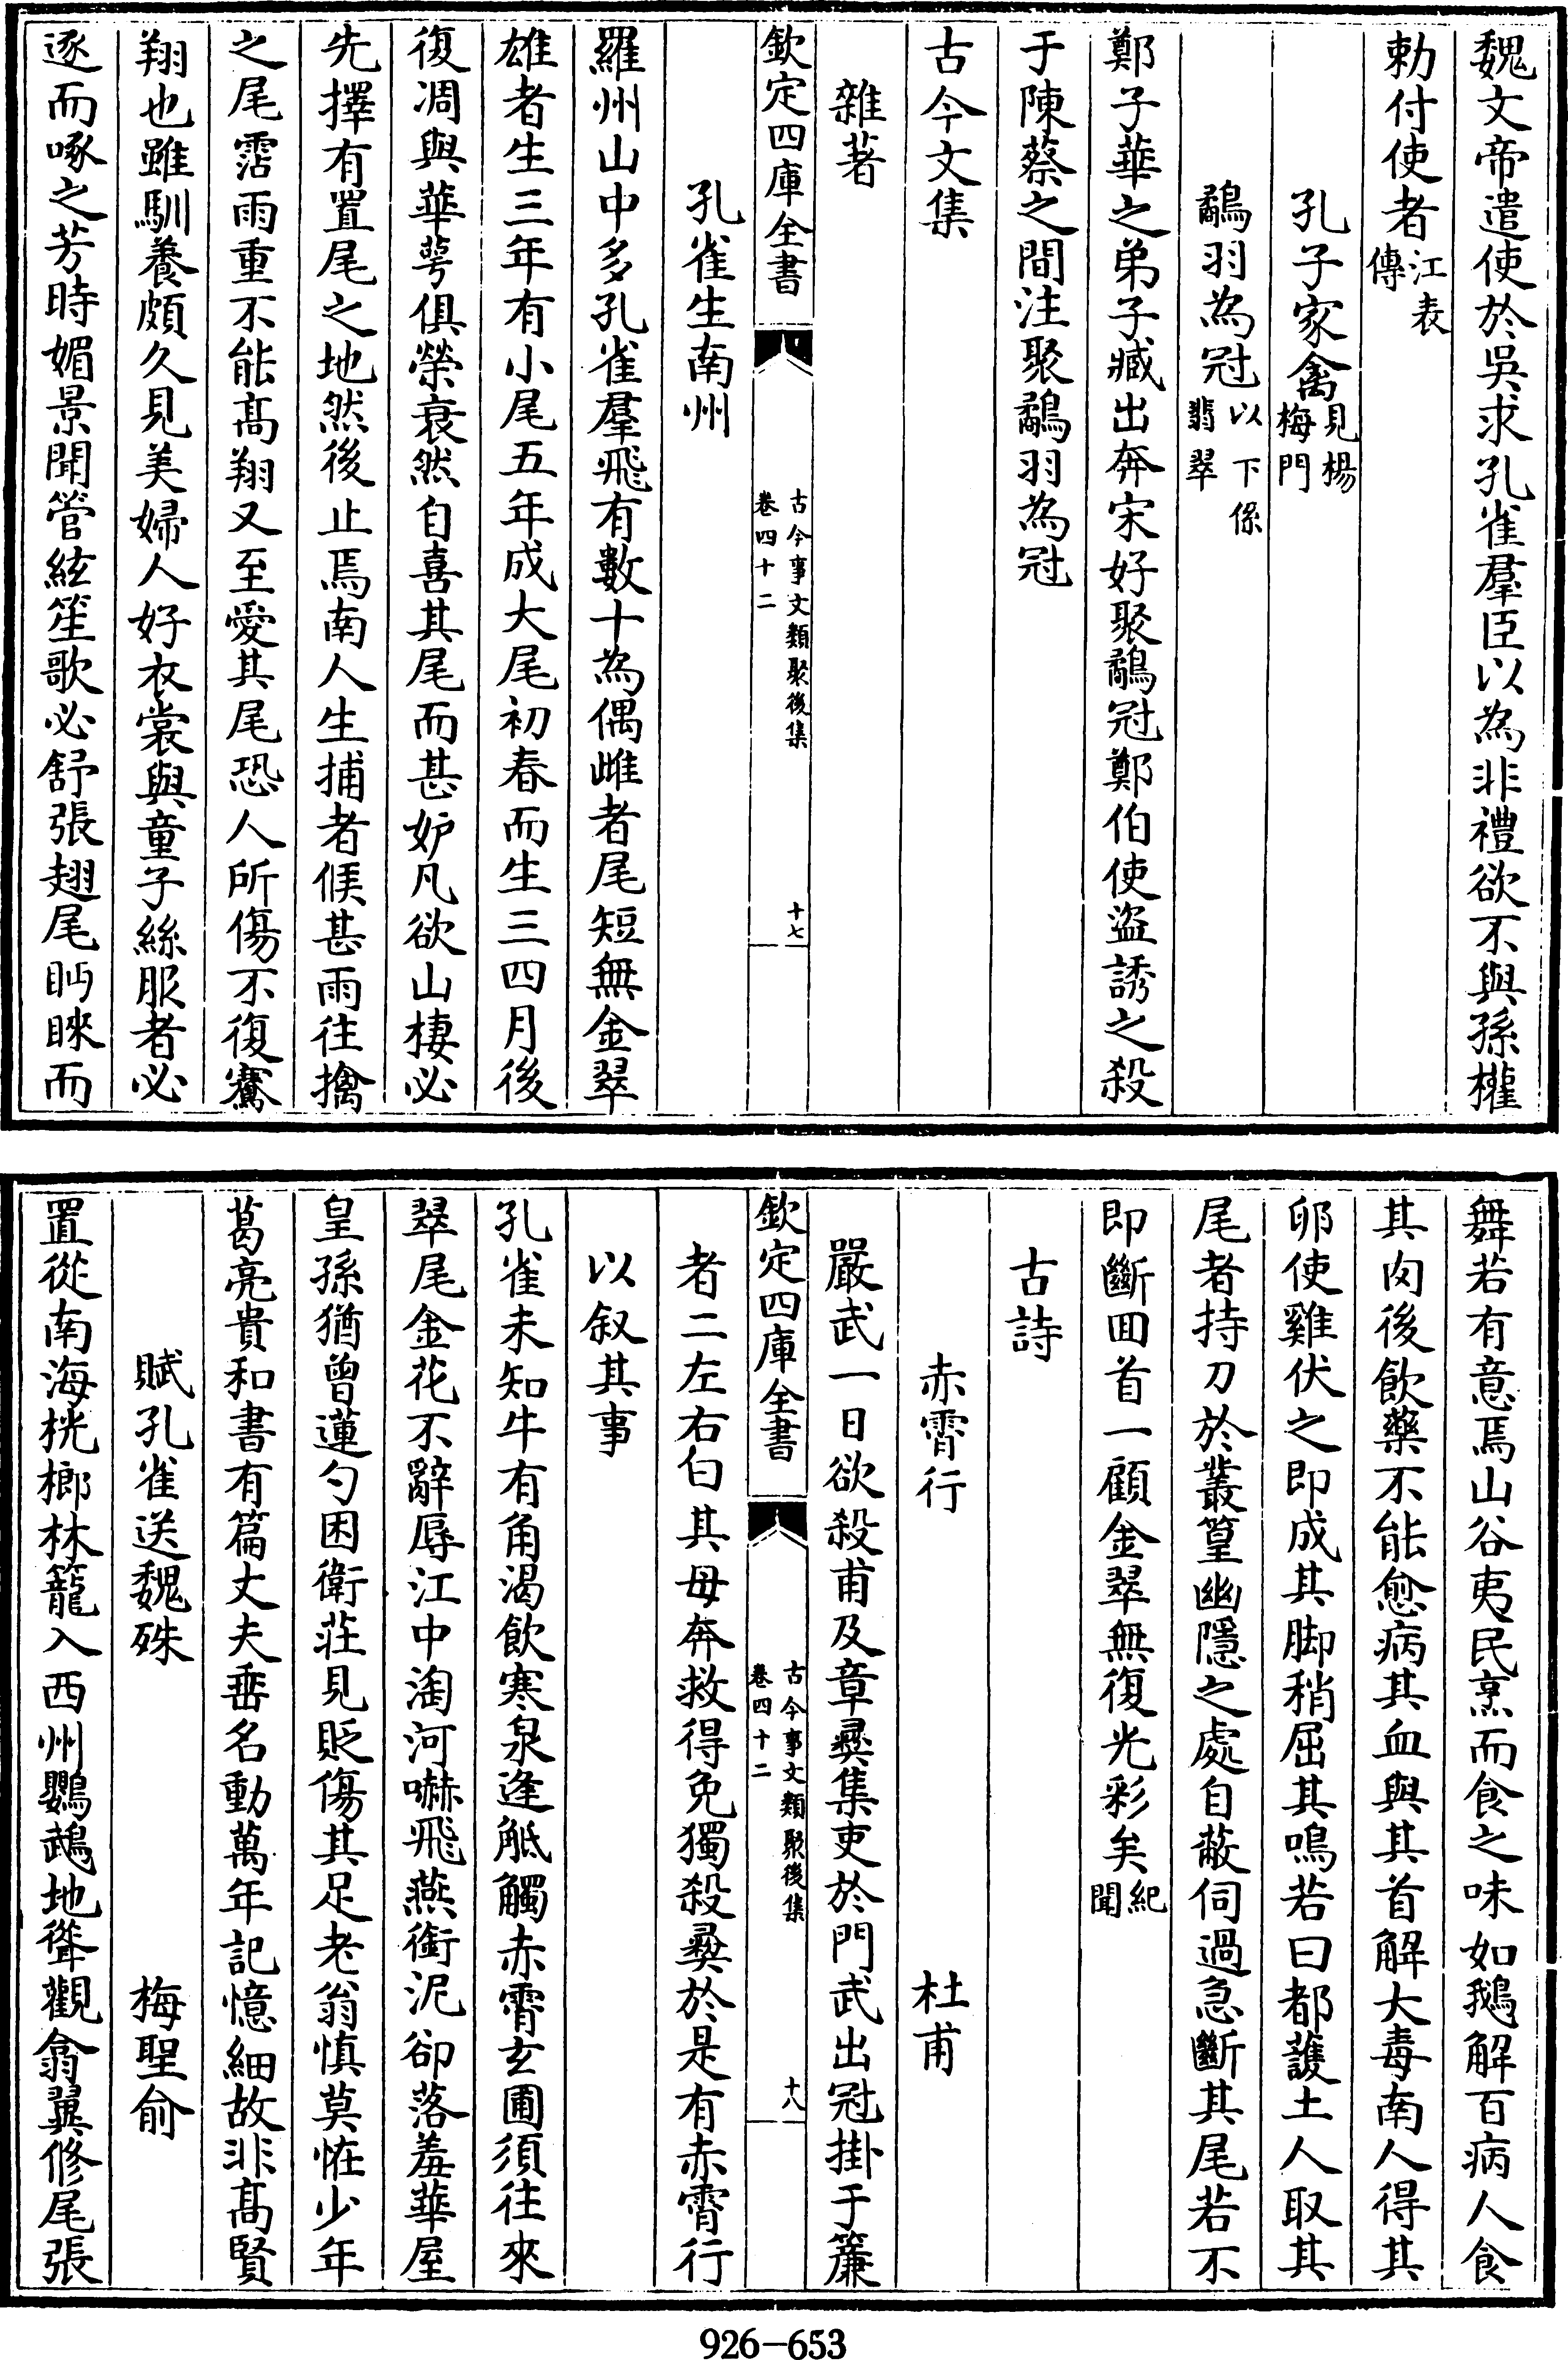 魏文帝遣使於吳求孔雀羣臣以為非禮欲不與孫權
勅付使者江表傳
孔子家禽見楊梅門
鷸羽為冠以下係翡翠
鄭子華之弟子臧出奔宋好聚鷸冠鄭伯使盜誘之殺
于陳蔡之間注聚鷸羽為冠
古今文集
雜著
欽定四庫全書
古今事文類聚後集
卷四十二
十七
孔雀生南州
羅州山中多孔雀羣飛有數十為偶雌者尾短無金翠
雄者生三年有小尾五年成大尾初春而生三四月後
復凋與華萼俱榮衰然自喜其尾而甚妒凡欲山棲必
先擇有置尾之地然後止焉南人生捕者候甚雨往擒
之尾霑雨重不能髙翔又至愛其尾恐人所傷不復騫
翔也雖馴養頗久見美婦人好衣裳與童子絲服者必
逐而啄之芳時媚景聞管絃笙歌必舒張翅尾眄睞而
舞若有意焉山谷夷民烹而食之味如鵝解百病人食
其肉後飲藥不能愈病其血與其首解大毒南人得其
卵使雞伏之即成其脚稍屈其鳴若曰都護土人取其
尾者持刀於叢篁幽隱之處自蔽伺過急斷其尾若不
即斷囬首一顧金翠無復光彩矣紀聞
古詩
赤霄行 杜甫
嚴武一日欲殺甫及章彛集吏於門武出冠掛于簾
欽定四庫全書
古今事文類聚後集
卷四十二
十八
者二左右白其母奔救得免獨殺彛於是有赤霄行
以叙其事
孔雀未知牛有角渴飲寒泉逢觝觸赤霄玄圃須往來
翠尾金花不辭辱江中淘河嚇飛燕銜泥卻落羞華屋
皇孫猶曾蓮勺困衛莊見貶傷其足老翁慎莫恠少年
葛亮貴和書有篇丈夫垂名動萬年記憶細故非髙賢
賦孔雀送魏殊 梅聖俞
置從南海桄榔林籠入西州鸚鵡地聳觀翕翼修尾張
926-653